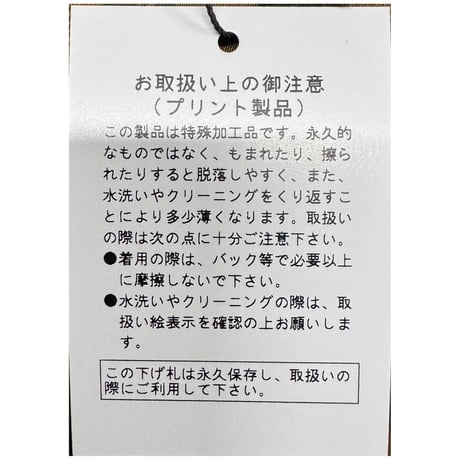 お取扱い上の御注意
（プリント製品）
この製品は特殊加工品です。永久的
なものではなく、もまれたり、擦ら
れたりすると脱落しやすく、また、
水洗いやクリーニングをくり返すこ
とにより多少薄くなります。取扱い
の際は次の点に十分ご注意下さい。
●着用の際は、バック等で必要以上
に摩擦しないで下さい。
●水洗いやクリーニングの際は、取
扱い絵表示を確認の上お願いしま
す。
この下げ札は永久保存し、取扱いの
際にご利用して下さい。